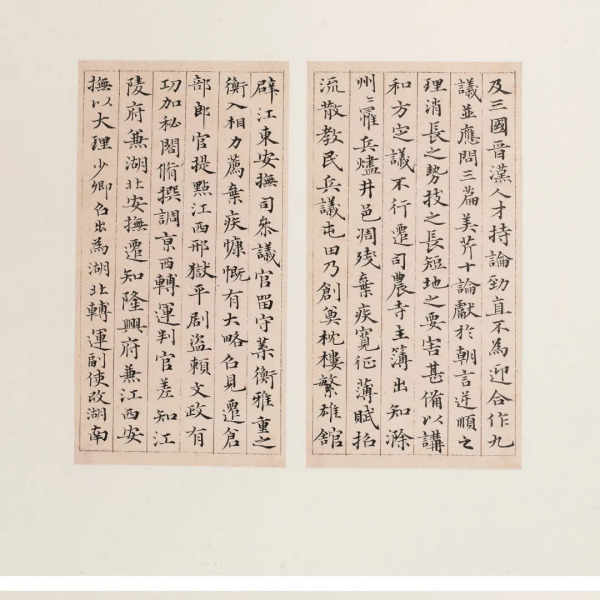 及三國晉漢人才持論勁直不為迎合作九
議並應問三篇美芹十論獻於朝言逆順之
理消長之勢技之長短地之要害甚備以講
和方定議不行遷司農寺主簿出知滁
州〻罹兵燼井邑凋殘棄疾寬征薄賦招
流散教民兵議屯田乃創奠枕樓繁雄館
辟江東安撫司參議官留守葉衡雅重之
衡入相力薦棄疾慷慨有大略召見遷倉
部郎官提點江西刑獄平劇盜賴文政有
功加秘閣脩撰調京西轉運判官差知江
陵府兼湖北安撫遷知隆興府兼江西安
撫以大理少卿召出為湖北轉運副使改湖南